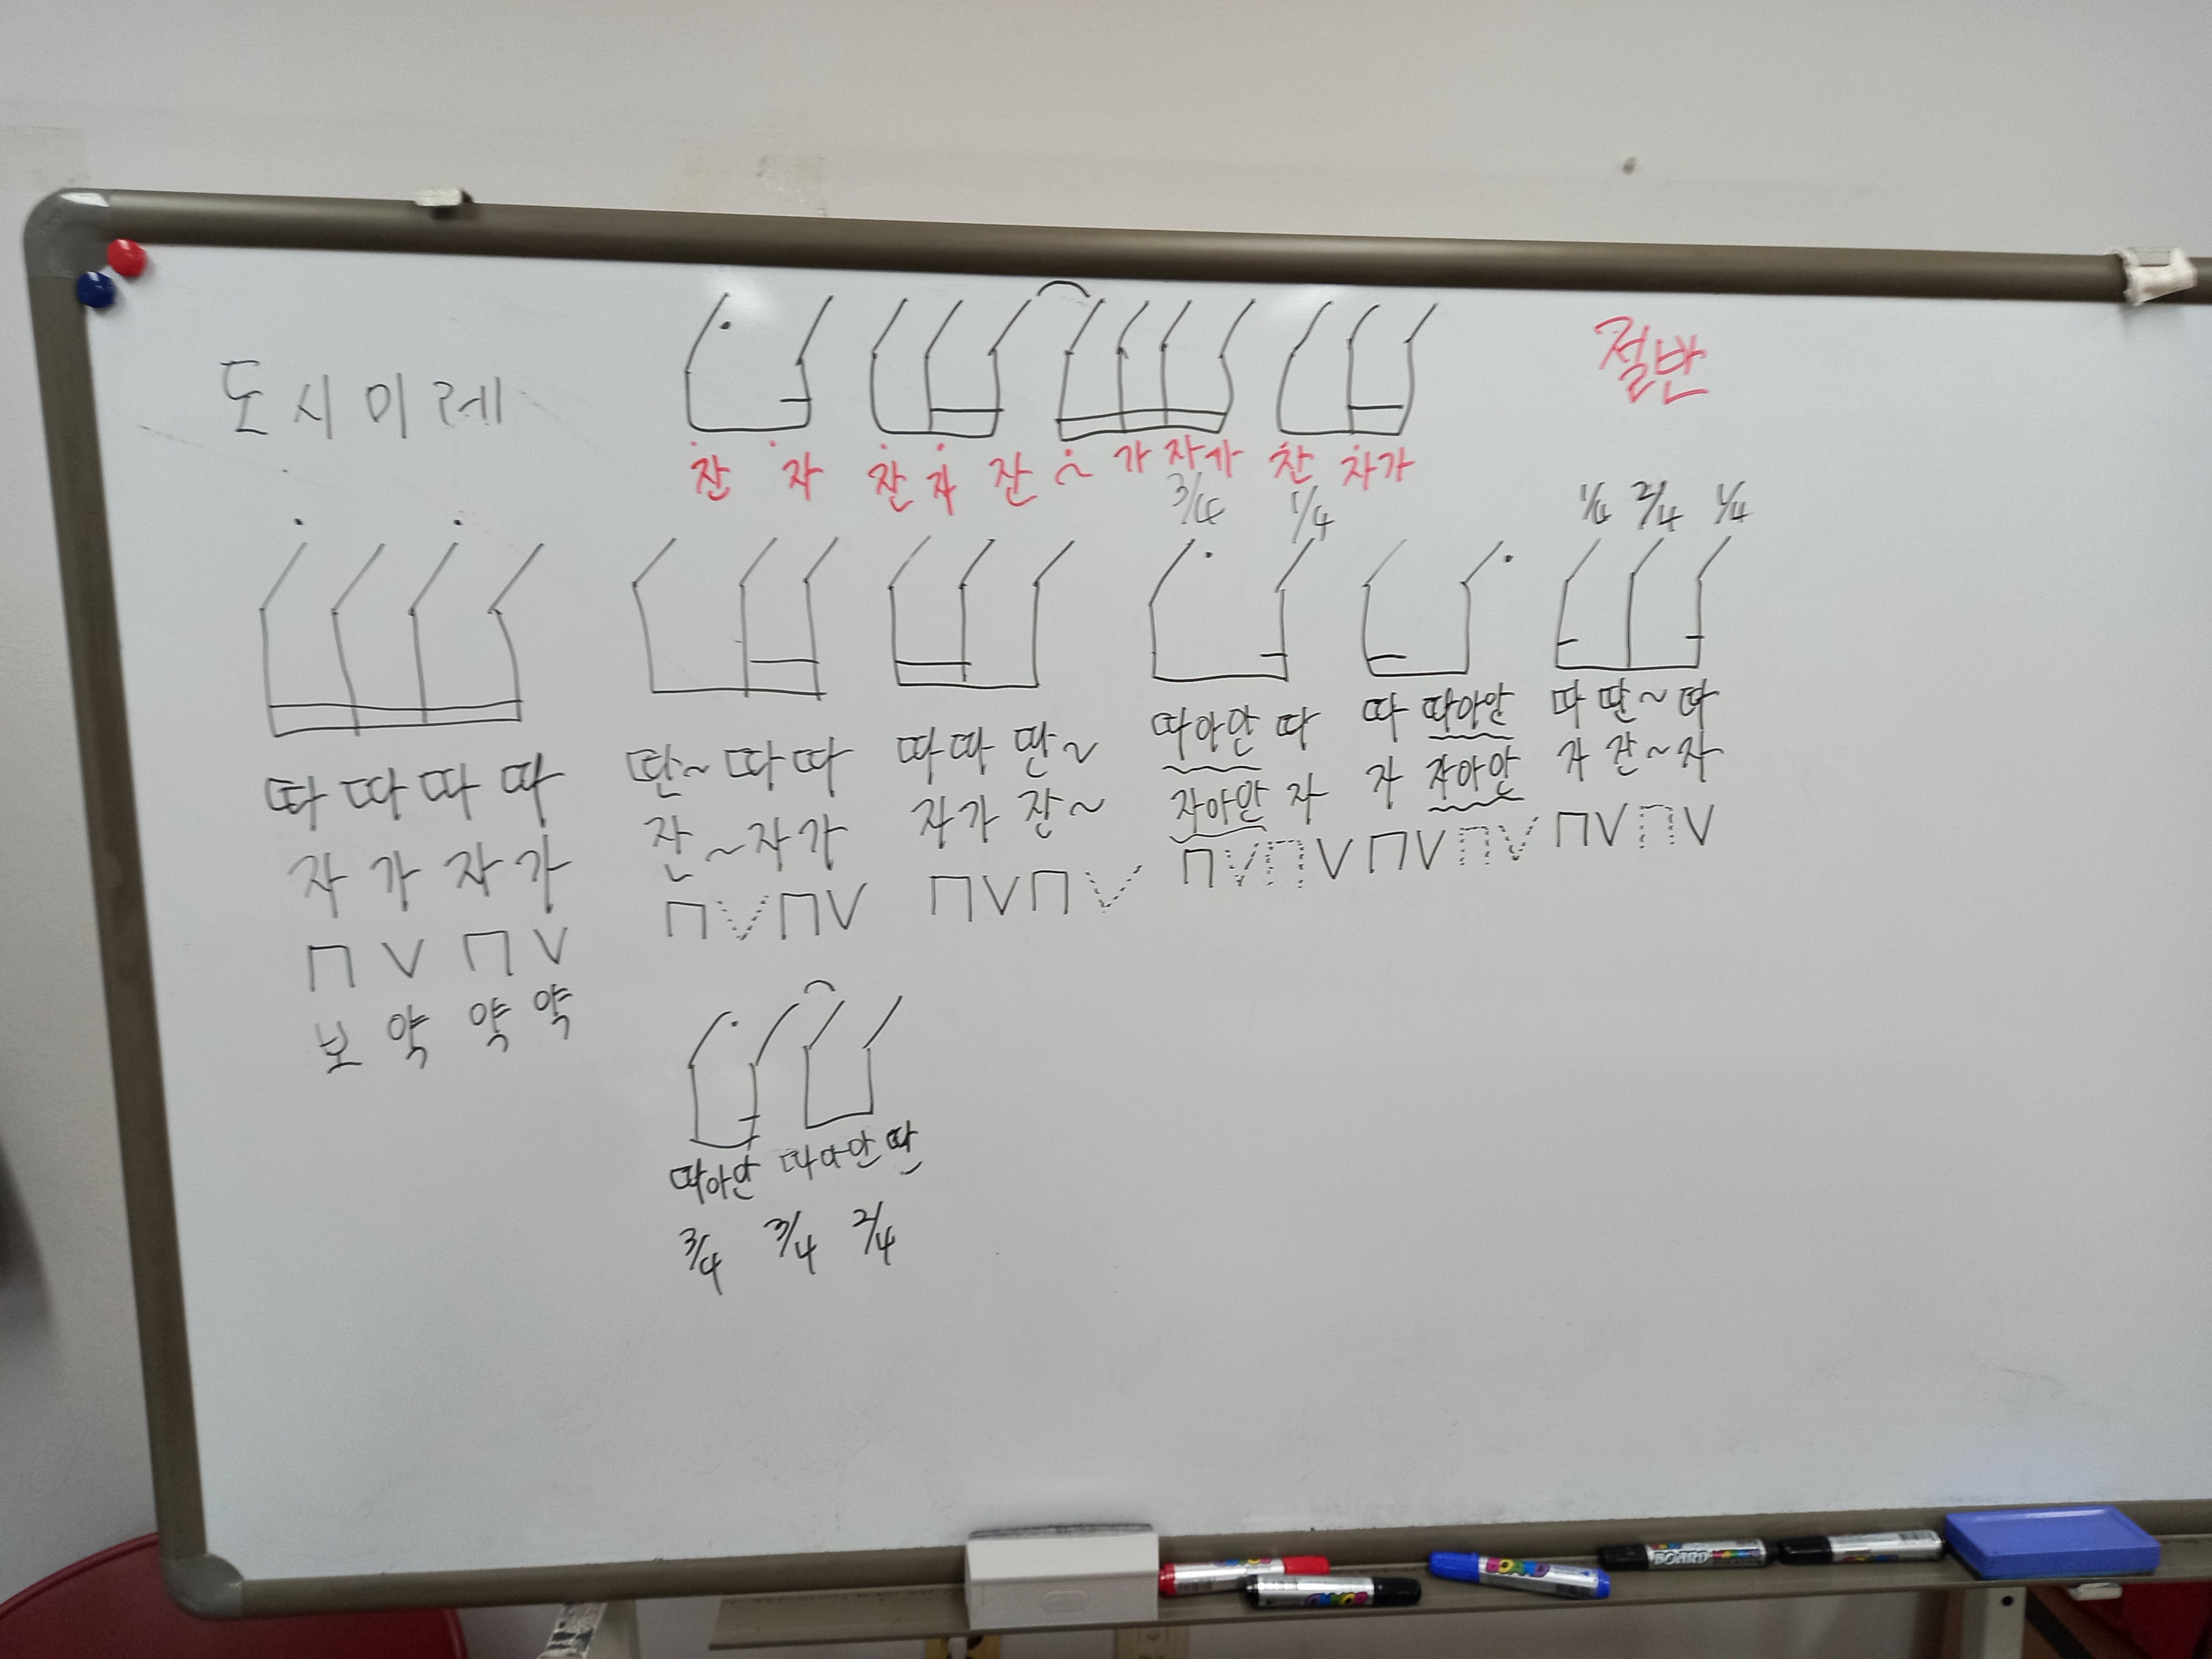 절반
도시미레
잔 자 잔자 잔 ~ 가 자가 잔 자가
3/4 1/4 1/4 2/4 1/4
따 따 따 따 딴~ 따 따 따 따 딴~ 따아안 따 따 따아안 따 딴~ 따
자 가 자 가 잔~자가 자가 잔~ 자아안 자 자 자아안 자 잔~자
ㄇ V ㄇ V ㄇ V ㄇ V ㄇ V ㄇ V ㄇ V ㄇ V ㄇ V ㄇ V ㄇ V ㄇ V
보 약 약 약
따아안 따아안 딴
3/4 3/4 2/4
BOARD